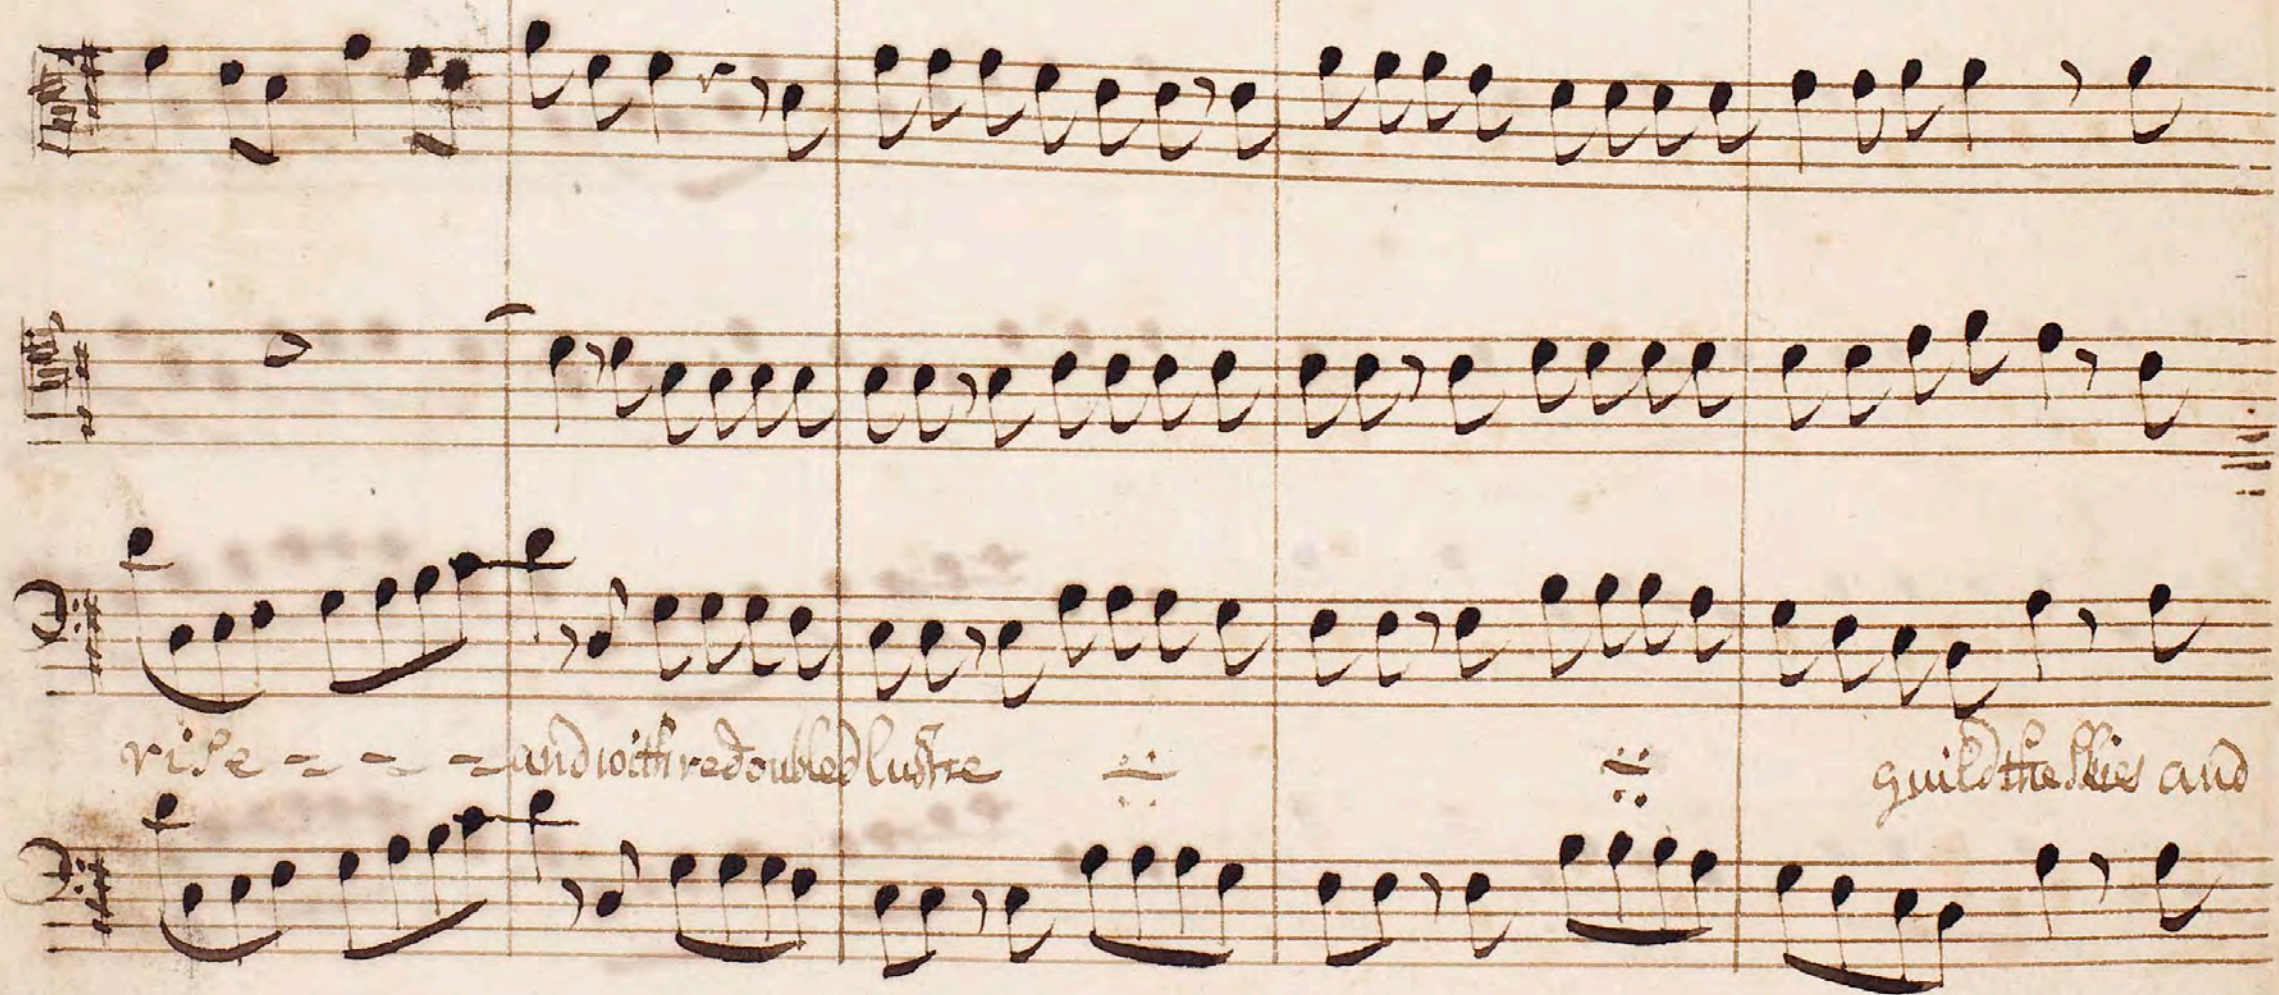 rise - - - and with redoubled lustre guild the skies and